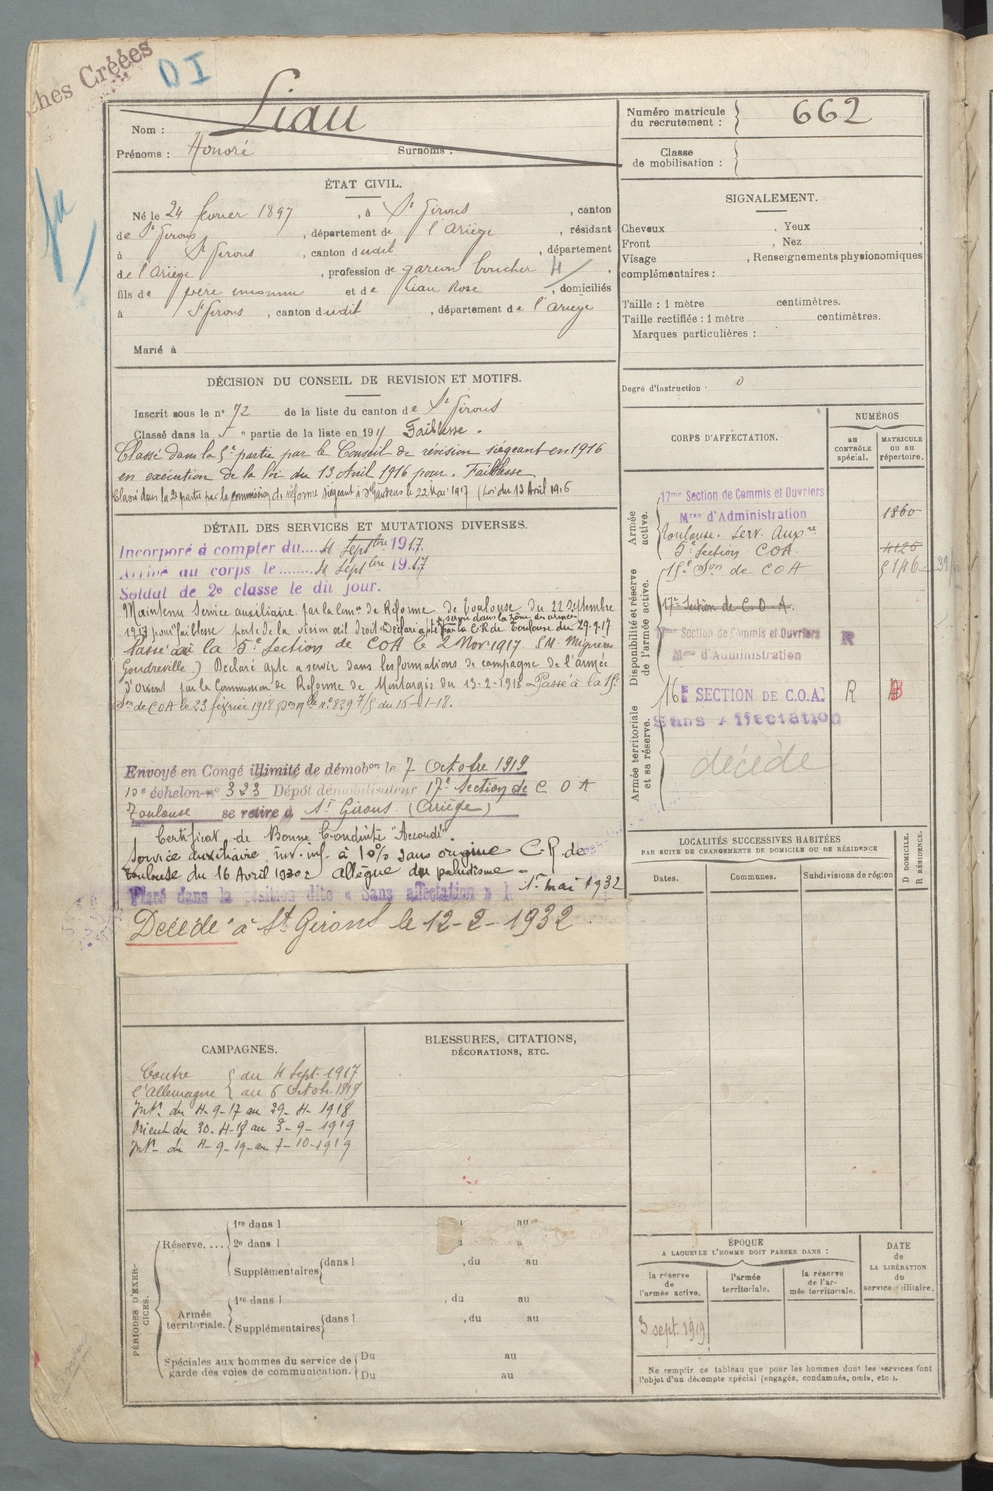 ches Créées
DI
Nom : Liau
Prénoms : Honoré Surnoms :
Numéro matricule du recrutement : 662
Classe de mobilisation :
ÉTAT CIVIL.
Né le 24 février 1897, à St Girons, canton
de St Girons, département de l'Ariège, résidant
à St Girons, canton dudit, département
de l'Ariège, profession de garçon boucher
fils de père inconnu et de Liau Rose, domiciliés
à St Girons, canton dudit, département de l'Ariège
Marié à
SIGNALEMENT.
Cheveux , Yeux ,
Front , Nez ,
Visage , Renseignements physionomiques
complémentaires :
Taille : 1 mètre centimètres.
Taille rectifiée : 1 mètre centimètres.
Marques particulières :
Degré d'instruction : 0
DÉCISION DU CONSEIL DE REVISION ET MOTIFS.
Inscrit sous le n° 72 de la liste du canton de St Girons
Classé dans la 5e partie de la liste en 191 Faiblesse.
Classé dans la 5e partie par le Conseil de révision siégeant en 1916
en exécution de la loi du 13 Avril 1916 pour. Faiblesse
Classé dans la 2e partie par la commission de réforme siégeant à St Gaudens le 22 Mai 1917 (Loi du 13 Avril 1916
DÉTAIL DES SERVICES ET MUTATIONS DIVERSES.
Incorporé à compter du.... 4 Septbre 1917.
Arrivé au corps le........ 4 Septbre 1917.
Soldat de 2e classe le dit jour.
Maintenu Service auxiliaire par la Comon de Réforme de Toulouse du 22 Septembre
1917 pour faiblesse perte de la vision œil droit. Déclaré apte à servir dans la zone des armées par la C.R. de Toulouse du 29-9-17
Passé à la 5e Section de COA le 2 Nov 1917
Déclaré apte à servir dans les formations de campagne de l'armée
d'Orient par la Commission de Réforme de Montargis du 13-2-1918 Passé à la 15e
Son de COA le 23 février 1918
Envoyé en Congé illimité de démobon le 7 Octobre 1919
10e échelon n° 323 Dépôt démobilisateur 17e Section de C O A
Toulouse se retire à St Girons (Ariège)
Certificat de Bonne Conduite "Accordé".
Service auxiliaire, inv. inf. à 10% sans origine C.R. de
Toulouse du 16 Avril allègue du paludisme
Placé dans la position dite « Sans affectation » 1er mai 1932
Décédé à St Girons le 12-2-1932
CORPS D'AFFECTATION.
NUMÉROS
au CONTRÔLE spécial.
MATRICULE ou au répertoire.
Armée active.
17me Section de Commis et Ouvriers
Mres d'Administration
Toulouse. Serv. Auxre 1860
5e Section COA 4126
15e Son de COA
Disponibilité et réserve de l'armée active.
17e Section de C. O. A.
17me Section de Commis et Ouvriers R
Mres d'Administration
Armée territoriale et sa réserve.
16E SECTION DE C.O.A. R
Sans Affectation
décédé
LOCALITÉS SUCCESSIVES HABITÉES
PAR SUITE DE CHANGEMENTS DE DOMICILE OU DE RÉSIDENCE
Dates.
Communes.
Subdivisions de région
D DOMICILE.
R RÉSIDENCE.
CAMPAGNES.
Contre du 4 Sept. 1917
l'Allemagne au 6 Octob. 1919
Intr. du 4-9-17 au 29-4-1918
Orient du 30-4-18 au 3-9-1919
Intr. du 4-9-19 au 7-10-1919
BLESSURES, CITATIONS,
DÉCORATIONS, ETC.
PÉRIODES D'EXERCICES.
Réserve....
1re dans l au
2e dans l
Supplémentaires dans l , du au
Armée territoriale.
1re dans l , du au
Supplémentaires dans l , du au
Spéciales aux hommes du service de garde des voies de communication.
Du au
Du au
ÉPOQUE
A LAQUELLE L'HOMME DOIT PASSER DANS :
la réserve de l'armée active.
l'armée territoriale.
la réserve de l'armée territoriale.
DATE de LA LIBÉRATION du service militaire.
3 sept. 1919
Ne remplir ce tableau que pour les hommes dont les services font
l'objet d'un décompte spécial (engagés, condamnés, omis, etc.).